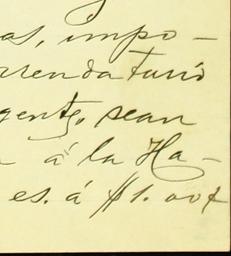 as, impo-
rrendatario
gente, sean
á la Ha-
es. á $1.00